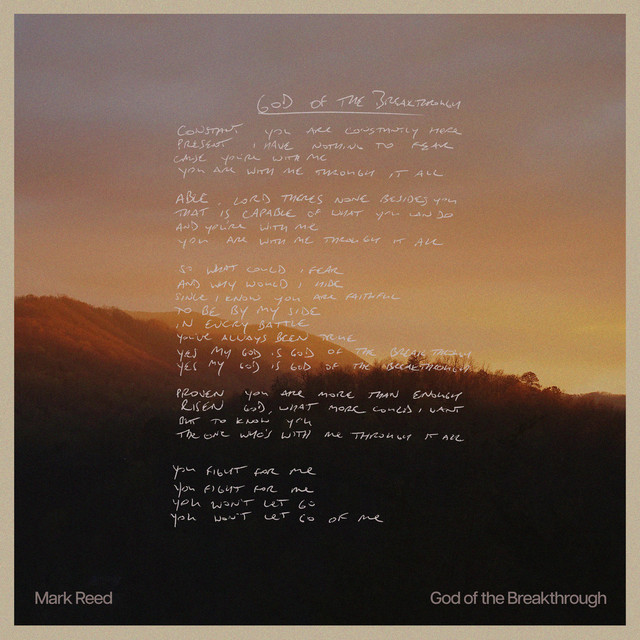 GOD OF THE BREAKTHROUGH
CONSTANT YOU ARE CONSTANTLY HERE
PRESENT I HAVE NOTHING TO FEAR
CAUSE YOU'RE WITH ME
YOU ARE WITH ME THROUGH IT ALL
ABLE, LORD THERES NONE BESIDES YOU
THAT IS CAPABLE OF WHAT YOU CAN DO
AND YOU'RE WITH ME
YOU ARE WITH ME THROUGH IT ALL
SO WHAT COULD I FEAR
AND WHY WOULD I HIDE
SINCE I KNOW YOU ARE FAITHFUL
TO BE BY MY SIDE
IN EVERY BATTLE
YOU'VE ALWAYS BEEN TRUE
YES MY GOD IS GOD OF THE BREAKTHROUGH
YES MY GOD IS GOD OF THE BREAKTHROUGH
PROVEN YOU ARE MORE THAN ENOUGH
RISEN GOD, WHAT MORE COULD I WANT
BUT TO KNOW YOU
THE ONE WHO'S WITH ME THROUGH IT ALL
YOU FIGHT FOR ME
YOU FIGHT FOR ME
YOU WON'T LET GO
YOU WON'T LET GO OF ME
Mark Reed
God of the Breakthrough